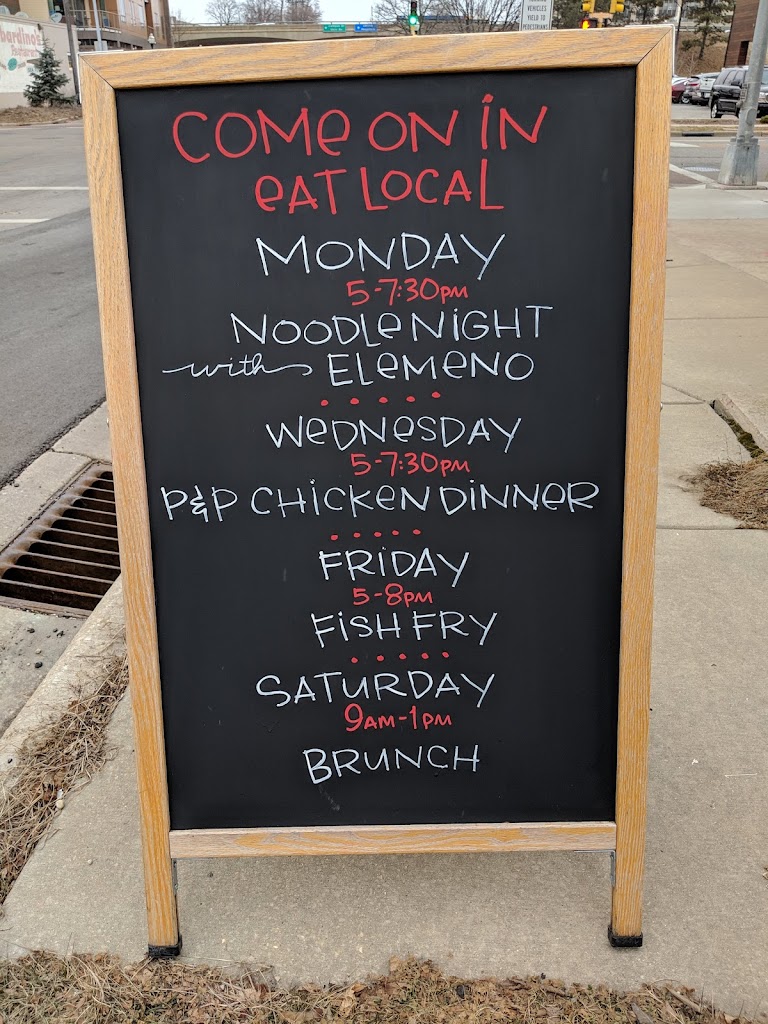 COME ON IN
EAT LOCAL
MONDAY
5-7:30PM
NOODLE NIGHT
with ELEMENO
WEDNESDAY
5-7:30PM
P&P CHICKEN DINNER
FRIDAY
5-8PM
FISH FRY
SATURDAY
9AM-1PM
BRUNCH
VEHICLES
YIELD TO
PEDESTRIANS